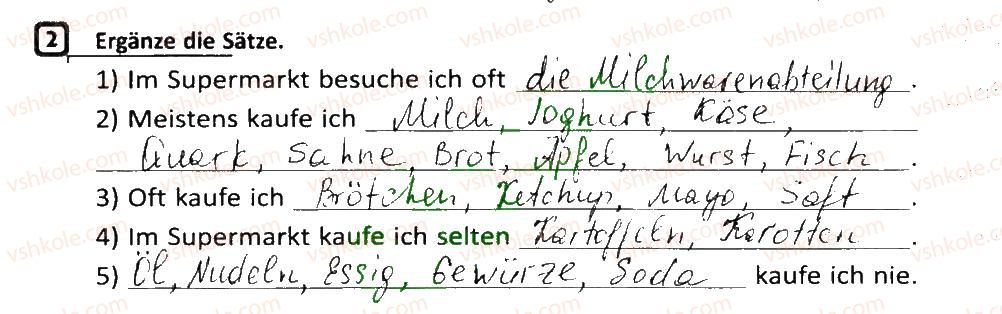 2 Ergänze die Sätze.
1) Im Supermarkt besuche ich oft die Milchwarenabteilung.
2) Meistens kaufe ich Milch, Joghurt, Käse,
Quark, Sahne, Brot, Äpfel, Wurst, Fisch.
3) Oft kaufe ich Brötchen, Ketchup, Mayo, Saft.
4) Im Supermarkt kaufe ich selten Kartoffeln, Karotten.
5) Öl, Nudeln, Essig, Gewürze, Soda kaufe ich nie.